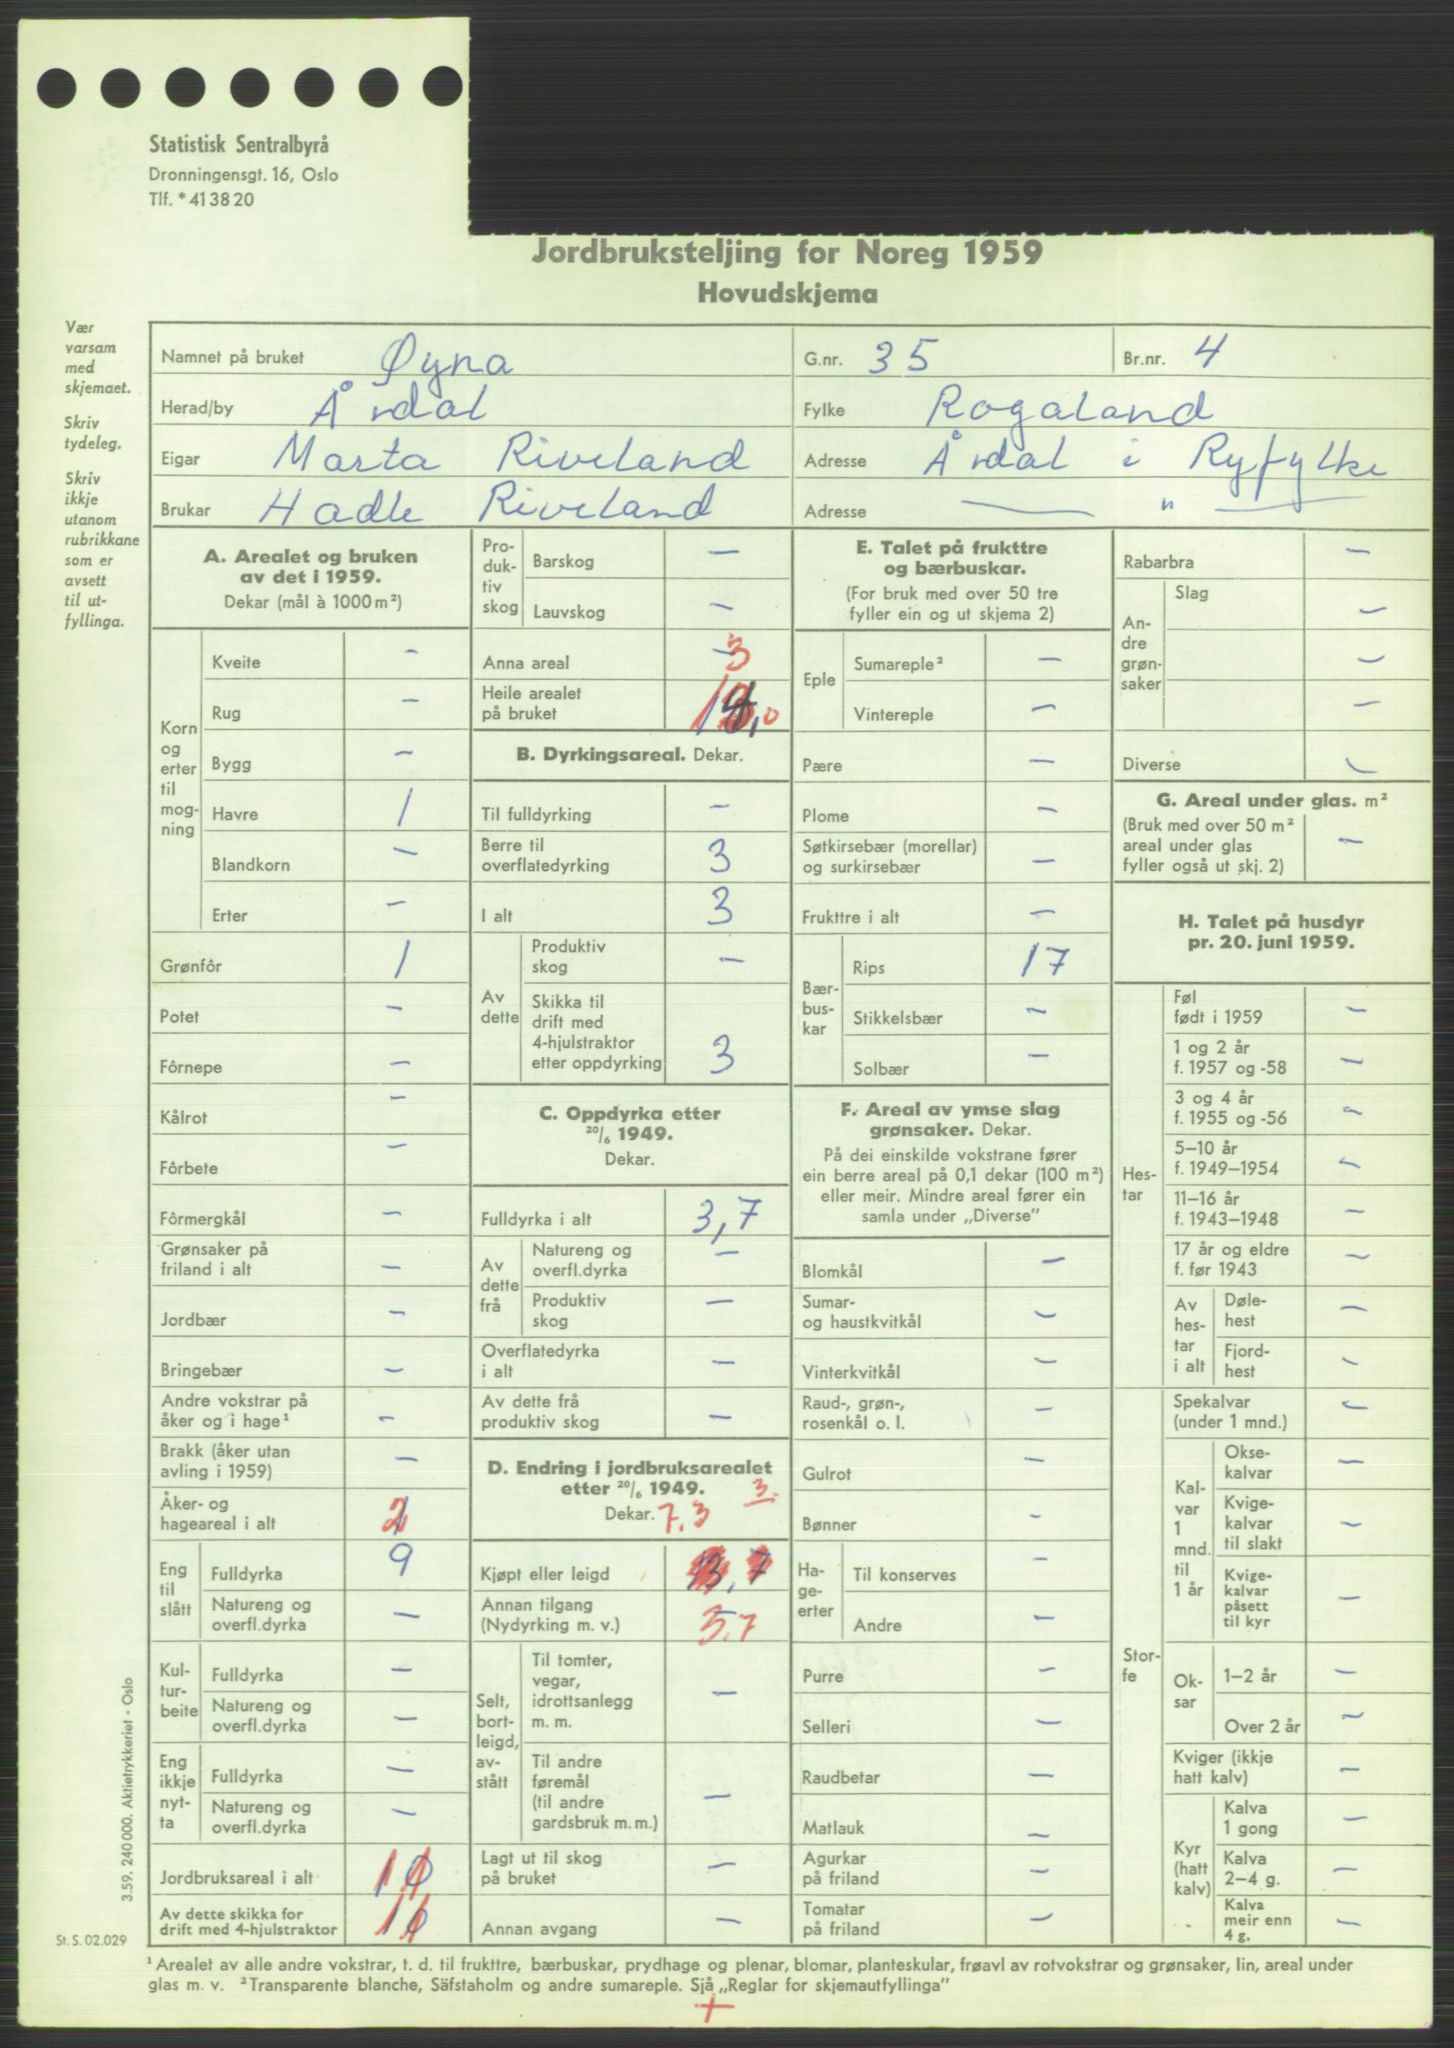 Statistisk Sentralbyrå
Dronningensgt. 16, Oslo
Tlf. * 41 38 20
Jordbruksteljing for Noreg 1959
Hovudskjema
Vær
varsam
med
skjemaet.
Skriv
tydeleg.
Skriv
ikkje
utanom
rubrikkane
som er
avsett
til ut-
fyllinga.
Namnet på bruket Øyna G.nr. 35 Br.nr. 4
Herad/by Årdal Fylke Rogaland
Eigar Marta Riveland Adresse Årdal i Ryfylke
Brukar Hadle Riveland Adresse — " —
A. Arealet og bruken
av det i 1959.
Dekar (mål à 1000 m²)
Korn
og
erter
til
mog-
ning
Kveite –
Rug –
Bygg –
Havre 1
Blandkorn –
Erter –
Grønfôr 1
Potet –
Fôrnepe –
Kålrot –
Fôrbete –
Fôrmergkål –
Grønsaker på
friland i alt –
Jordbær –
Bringebær –
Andre vokstrar på
åker og i hage¹ –
Brakk (åker utan
avling i 1959) –
Åker- og
hageareal i alt 2
Eng
til
slått
Fulldyrka 9
Natureng og
overfl.dyrka –
Kul-
tur-
beite
Fulldyrka –
Natureng og
overfl.dyrka –
Eng
ikkje
nyt-
ta
Fulldyrka –
Natureng og
overfl.dyrka –
Jordbruksareal i alt
Av dette skikka for
drift med 4-hjulstraktor
Pro-
duk-
tiv
skog
Barskog –
Lauvskog –
Anna areal 3
Heile arealet
på bruket
B. Dyrkingsareal. Dekar.
Til fulldyrking –
Berre til
overflatedyrking 3
I alt 3
Av
dette
Produktiv
skog –
Skikka til
drift med
4-hjulstraktor
etter oppdyrking 3
C. Oppdyrka etter
20/6 1949.
Dekar.
Fulldyrka i alt 3,7
Av
dette
frå
Natureng og
overfl.dyrka –
Produktiv
skog –
Overflatedyrka
i alt –
Av dette frå
produktiv skog –
D. Endring i jordbruksarealet
etter 20/6 1949. 3.
Dekar. 7,3
Kjøpt eller leigd
Annan tilgang
(Nydyrking m. v.) 5.7
Selt,
bort-
leigd,
av-
stått
Til tomter,
vegar,
idrottsanlegg
m. m. –
Til andre
føremål
(til andre
gardsbruk m. m.) –
Lagt ut til skog
på bruket –
Annan avgang –
E. Talet på frukttre
og bærbuskar.
(For bruk med over 50 tre
fyller ein og ut skjema 2)
Eple
Sumareple² –
Vintereple –
Pære –
Plome –
Søtkirsebær (morellar)
og surkirsebær –
Frukttre i alt –
Bær-
bus-
kar
Rips 17
Stikkelsbær –
Solbær –
F. Areal av ymse slag
grønsaker. Dekar.
På dei einskilde vokstrane fører
ein berre areal på 0,1 dekar (100 m²)
eller meir. Mindre areal fører ein
samla under „Diverse”
Blomkål –
Sumar-
og haustkvitkål –
Vinterkvitkål –
Raud-, grøn-,
rosenkål o. l. –
Gulrot –
Bønner –
Ha-
ge-
erter
Til konserves –
Andre –
Purre –
Selleri –
Raudbetar –
Matlauk –
Agurkar
på friland –
Tomatar
på friland –
Rabarbra –
An-
dre
grøn-
saker
Slag –
–
–
Diverse –
G. Areal under glas. m²
(Bruk med over 50 m²
areal under glas
fyller også ut skj. 2) –
H. Talet på husdyr
pr. 20. juni 1959.
Hes-
tar
Føl
født i 1959 –
1 og 2 år
f. 1957 og -58 –
3 og 4 år
f. 1955 og -56 –
5–10 år
f. 1949–1954 –
11–16 år
f. 1943–1948 –
17 år og eldre
f. før 1943 –
Av
hes-
tar
i alt
Døle-
hest –
Fjord-
hest –
Stor-
fe
Spekalvar
(under 1 mnd.) –
Kal-
var
1
mnd.
til
1 år
Okse-
kalvar –
Kvige-
kalvar
til slakt –
Kvige-
kalvar
påsett
til kyr –
Ok-
sar
1–2 år –
Over 2 år –
Kviger (ikkje
hatt kalv) –
Kyr
(hatt
kalv)
Kalva
1 gong –
Kalva
2–4 g. –
Kalva
meir enn
4 g. –
3.59. 240 000. Aktietrykkeriet - Oslo
St. S. 02.029
¹ Arealet av alle andre vokstrar, t. d. til frukttre, bærbuskar, prydhage og plenar, blomar, planteskular, frøavl av rotvokstrar og grønsaker, lin, areal under
glas m. v. ² Transparente blanche, Säfstaholm og andre sumareple. Sjå „Reglar for skjemautfyllinga”
+